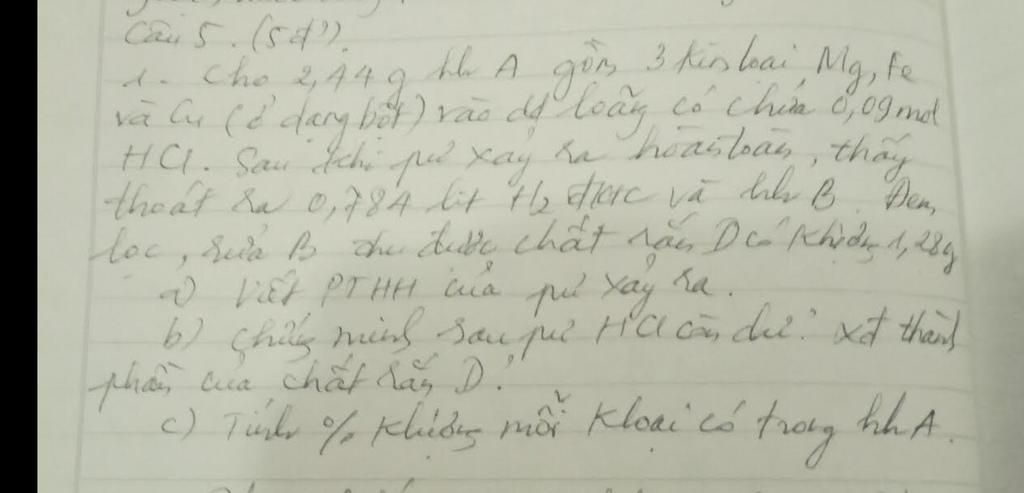 Câu 5. (5đ').
1. Cho 2,44g hh A gồm 3 kim loại Mg, Fe
và Cu (ở dạng bột) vào dd loãng có chứa 0,09mol
HCl. Sau khi pư xảy ra hoàn toàn, thấy
thoát ra 0,784 lit H₂ đktc và hh B. Đem
lọc, rửa B thu được chất rắn D có Khlượng 1,28g
a) Viết PTHH của pư xảy ra.
b) Chứng minh sau pư HCl còn dư. Xđ thành
phần của chất rắn D.
c) Tính % Khlượng mỗi Kloại có trong hh A.